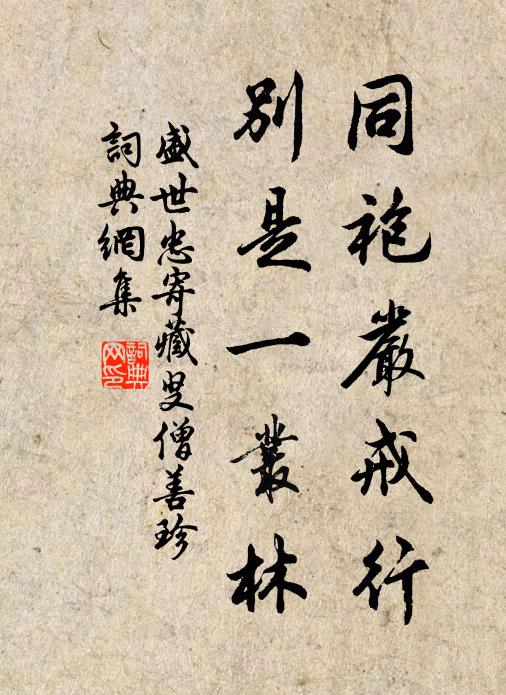 同袍嚴戒行
別是一叢林
盛世忠寄藏叟僧善珍
詞典網集
詞典网印